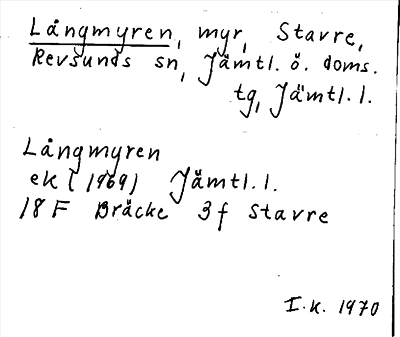 Långmyren, myr, Stavre,
Revsunds sn, Jämtl. ö. doms.
tg, Jämtl. l.
Långmyren
ek (1969) Jämtl. l.
18 F Bräcke 3 f Stavre
I. K. 1970